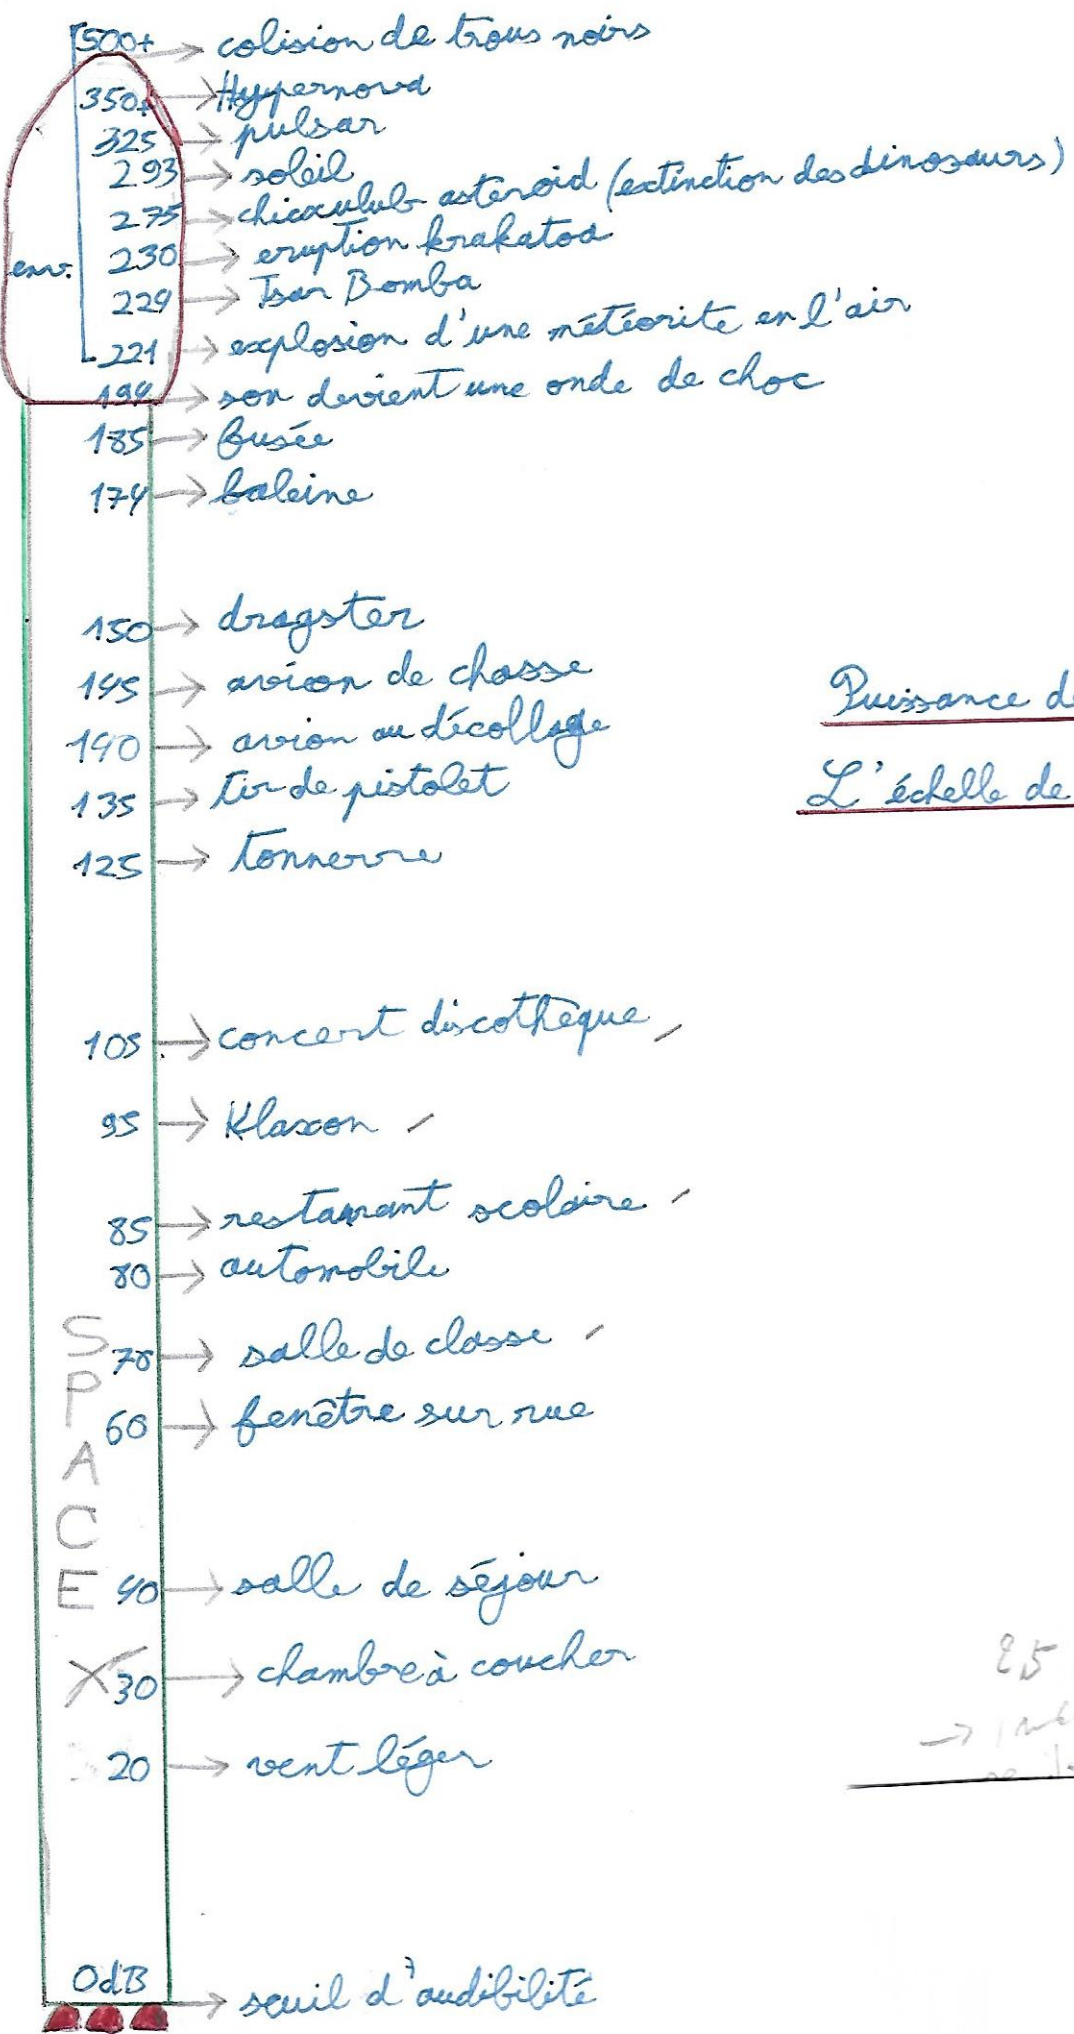 500+ → colision de trous noirs
350+ → Hypernova
325 → pulsar
293 → soleil
275 → chicxulub asteroid (extinction des dinosaurs)
env. 230 → eruption krakatoa
224 → Tsar Bomba
221 → explosion d'une météorite en l'air
194 → son devient une onde de choc
185 → fusée
174 → baleine
150 → dragster
145 → avion de chasse
Puissance de
140 → avion au décollage
135 → tir de pistolet
L'échelle de
125 → tonnerre
105 → concert discothèque
95 → Klaxon
85 → restaurant scolaire
80 → automobile
70 → salle de classe
60 → fenêtre sur rue
SPACE
40 → salle de séjour
30 → chambre à coucher
25
20 → vent léger
0dB → seuil d'audibilité